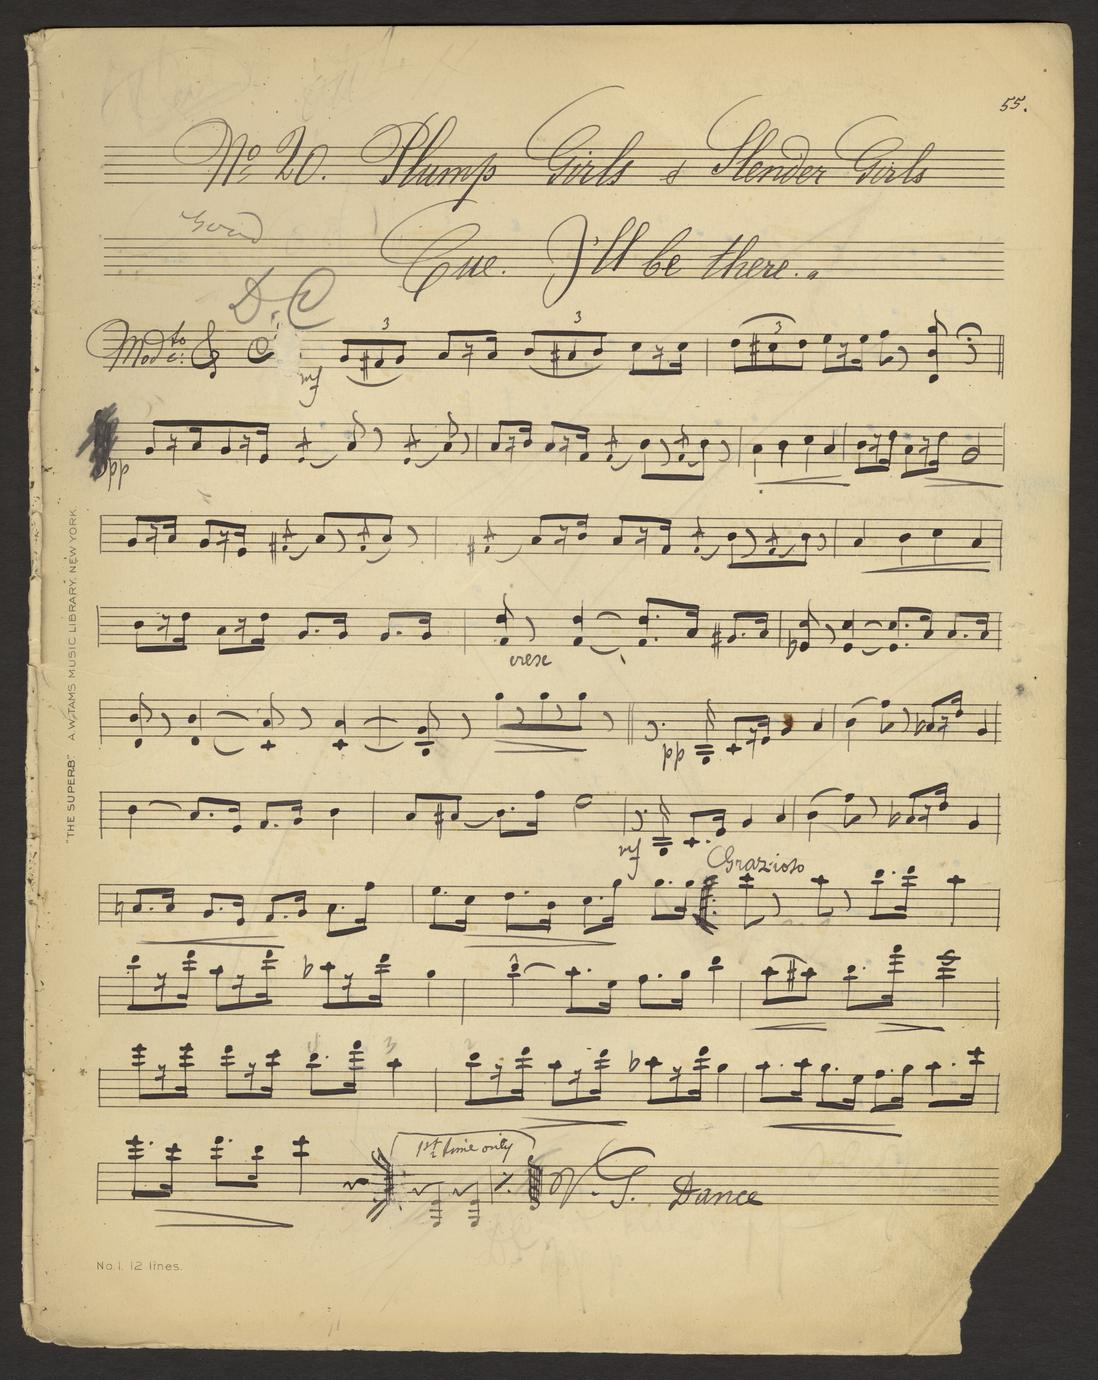 55.
No 20. Plump Girls & Slender Girls
Cue. I'll be there.
D.C
Modto
3 3 3
mf
pp
cresc
pp
mf
Grazioso
3
1st time only
V.S. Dance
"THE SUPERB" A.W. TAMS MUSIC LIBRARY. NEW YORK.
No 1. 12 lines.